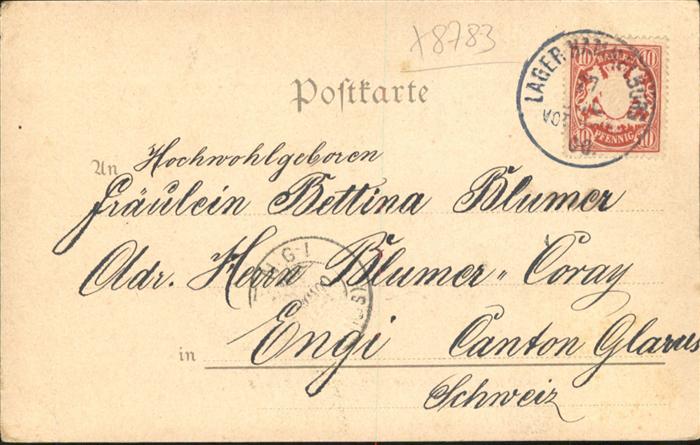 x8783
LAGER HAMMELBURG
BAYERN
10 10
PFENNIG
10 10
Postkarte
An Hochwohlgeboren
Fräulein Bettina Blumer
Adr. Herrn Blumer-Coray
ENGI
in Engi Canton Glarus
Schweiz